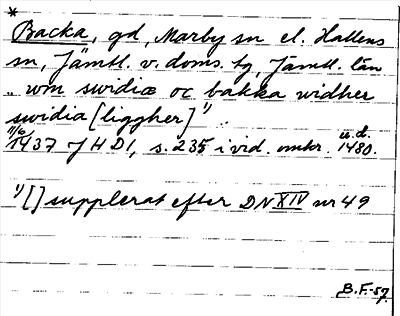 *
Backa, gd, Marby sn el. Hallens
sn, Jämtl. v. doms. tg, Jämtl. län
.. um swidiæ oc bakka widher
swidia [liggher] 1) ..
11/6 1437 JHD1, s. 235 i vid. omkr. u.d. 1480.
1) [] supplerat efter DN XIV nr 49
B.F.-57.